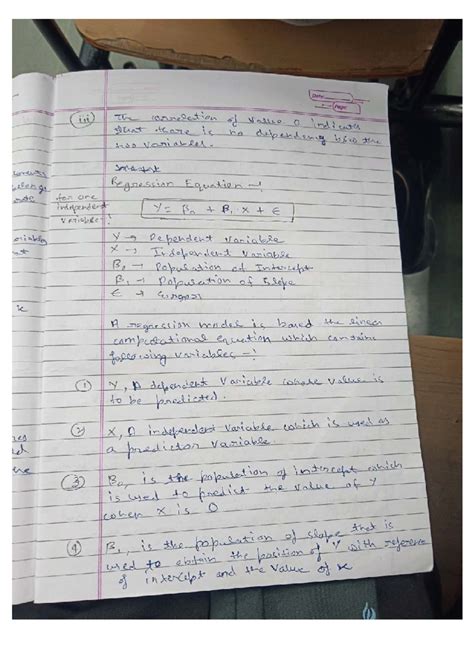 (iii) The correlation of value 0 indicates
that there is no dependency b/w the
two variables.
Regression Equation -!
for one
independent
variable !
Y = B0 + B1 . X + ∈
Y → Dependent variable
X → Independent variable
B0 → Population of Intercept
B1 → Population of Slope
∈ → Error
A regression model is based the linear
computational equation which contains
following variables -!
(1) Y, A dependent variable whose value is
to be predicted.
(2) X, A independent variable which is used as
a predictor variable.
(3) B0, is the population of intercept which
is used to predict the value of Y
when X is 0
(4) B1, is the population of slope that is
used to obtain the position of Y with reference
of intercept and the value of x